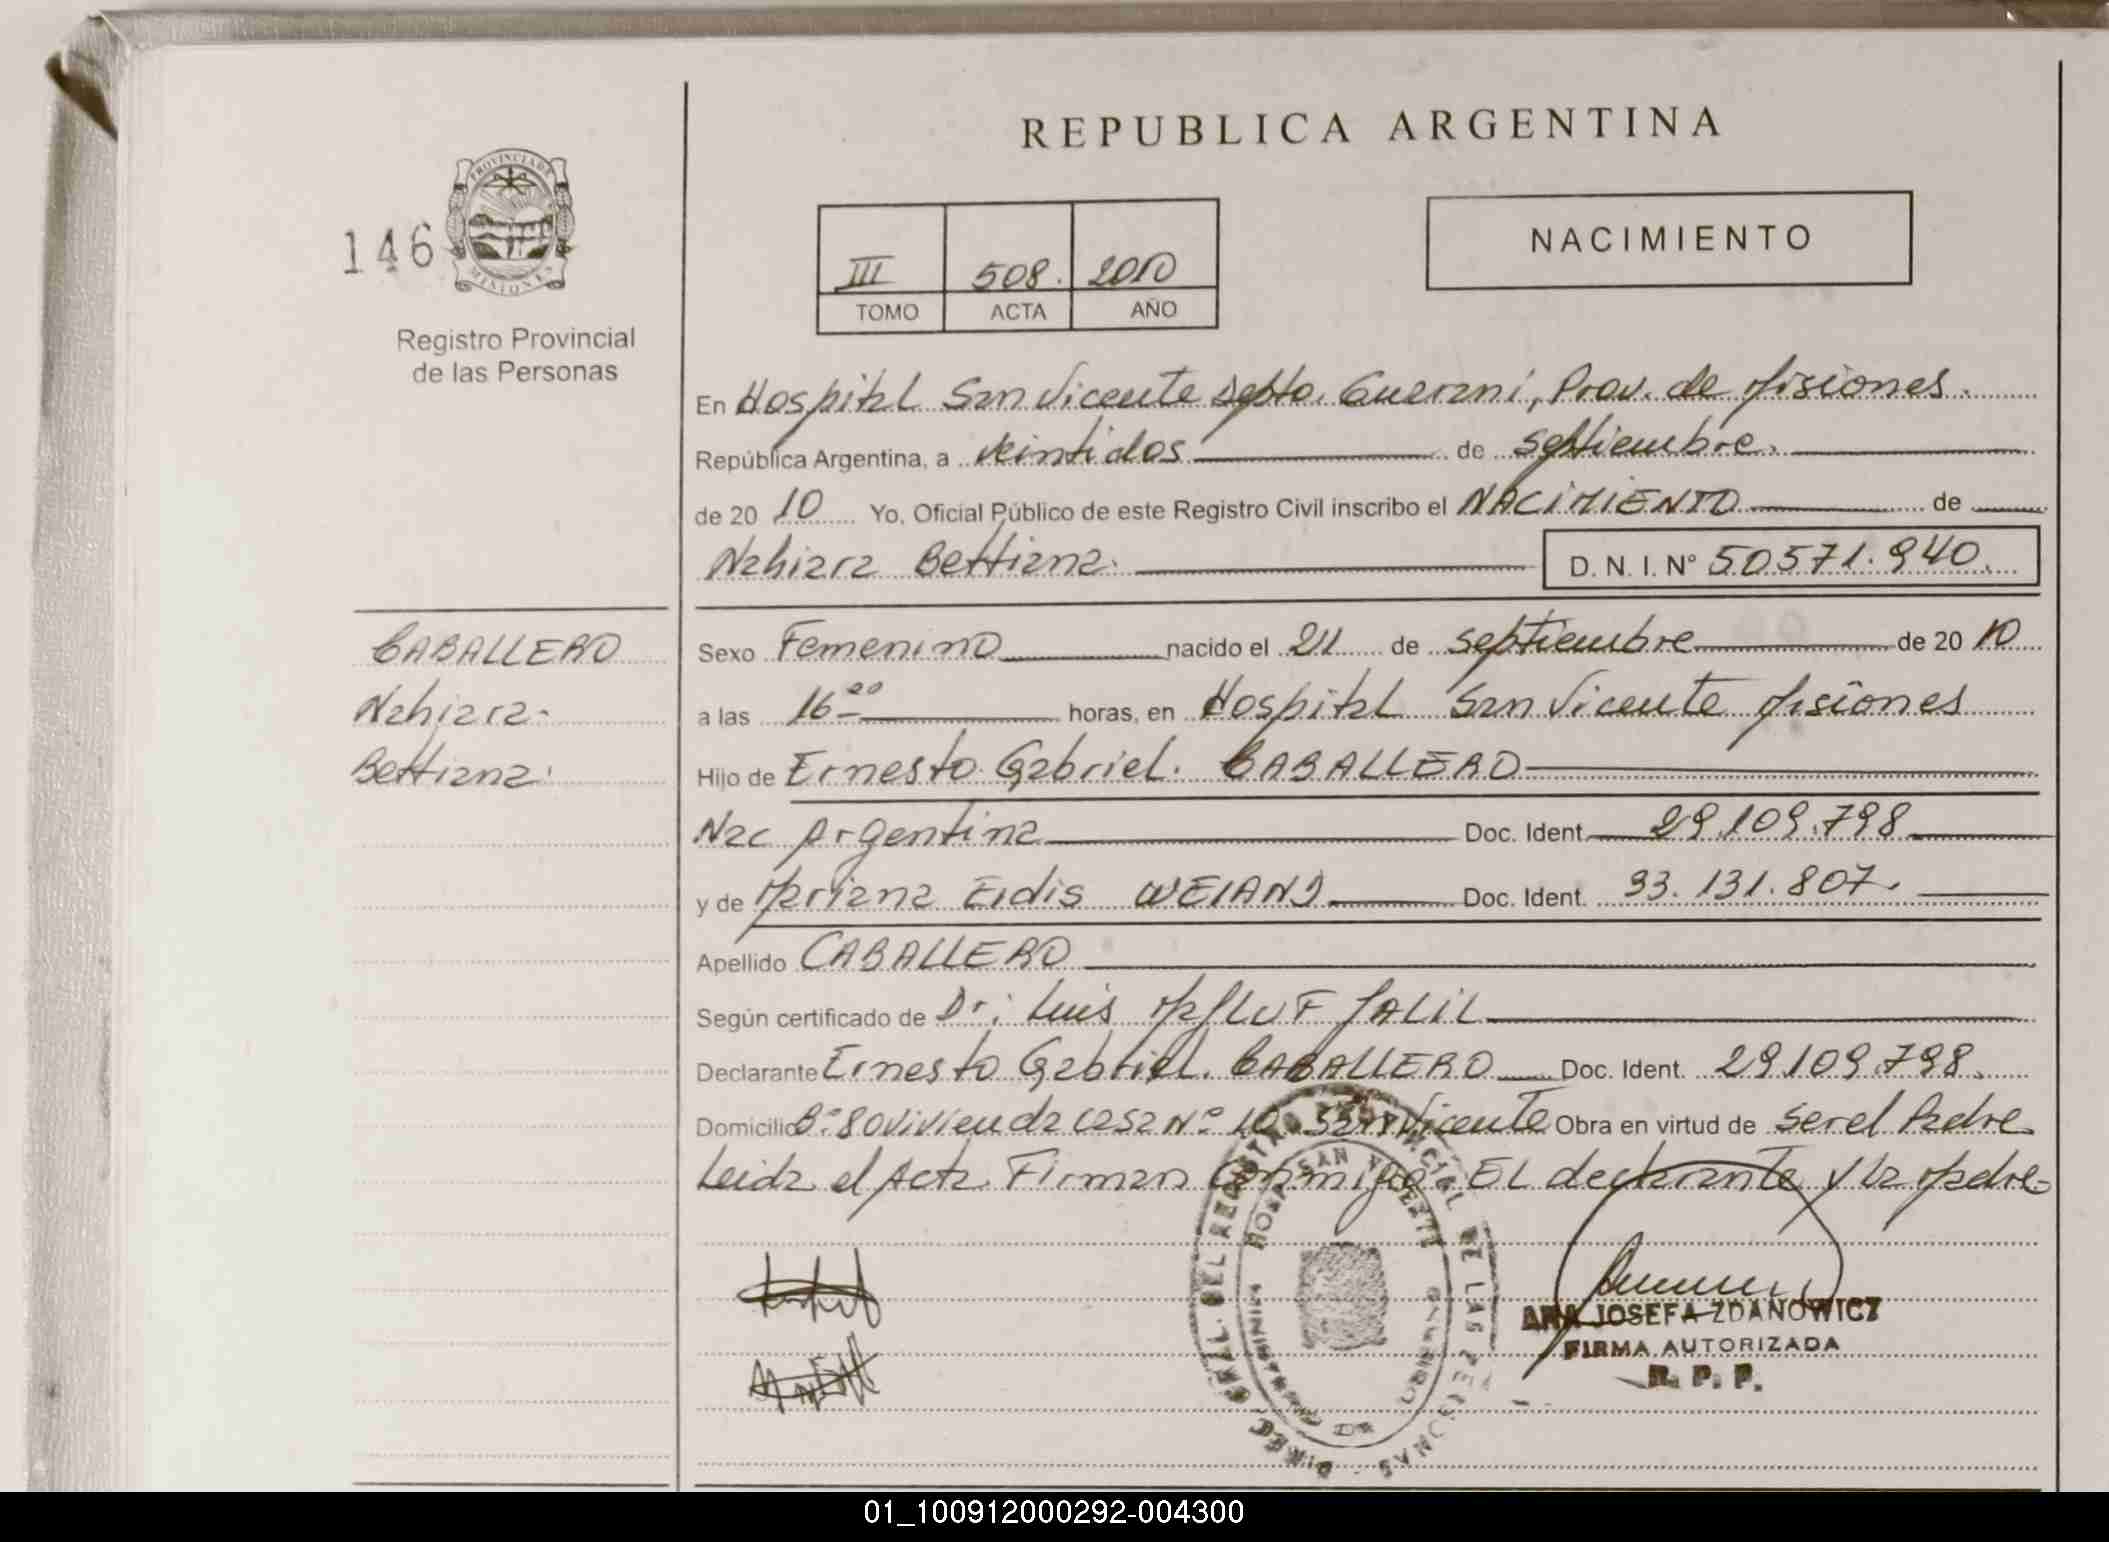 REPUBLICA ARGENTINA
146
PROVINCIA DE
MISIONES
Registro Provincial
de las Personas
III 508. 2010
TOMO ACTA AÑO
NACIMIENTO
En Hospital San Vicente Depto. Guarani, Prov. de Misiones.
República Argentina, a veintidos de septiembre.
de 20 10 Yo, Oficial Público de este Registro Civil inscribo el NACIMIENTO de
Nahiara Bettiana. D. N. I. Nº 50571.940.
CABALLERO
Nahiara
Bettiana
Sexo Femenino nacido el 21 de septiembre de 20 10
a las 16 horas, en Hospital San Vicente Misiones
Hijo de Ernesto Gabriel. CABALLERO
Nac Argentina Doc. Ident. 29.109.798
y de Mariana Eidis WEIAND Doc. Ident. 33.131.807.
Apellido CABALLERO
Según certificado de Dr: Luis MALUF JALIL
Declarante Ernesto Gabriel. CABALLERO Doc. Ident. 29109.798.
Domicilio Bº 80 Vivienda casa Nº 10 San Vicente Obra en virtud de ser el Padre
Leida el Acta Firman Conmigo EL declarante y la Madre
DIREC. GRAL. DEL REGISTRO PROVINCIAL DE LAS PERSONAS
HOSP. SAN VICENTE
GUARANI
ANA JOSEFA ZDANOWICZ
FIRMA AUTORIZADA
R. P. P.
01_100912000292-004300